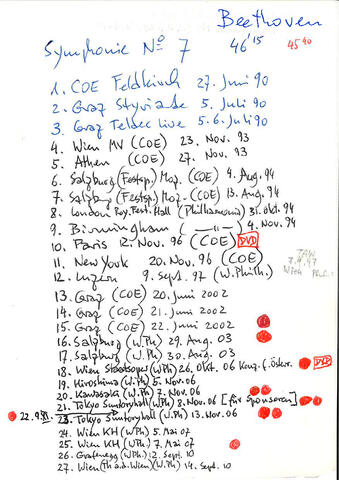 Beethoven
Symphonie No 7 46'15 45 40
1. COE Feldkirch 27. Juni 90
2. Graz Styriate 5. Juli 90
3. Graz Teldec live 5. 6. Juli 90
4. Wien MV (COE) 23. Nov. 93
5. Athen (COE) 27. Nov. 93
6. Salzburg (Festsp.) Moz. (COE) 4. Aug. 94
7. Salzburg (Festsp.) Moz. (COE) 13. Aug. 94
8. London Roy. Fest. Hall (Philharmonia) 31. Okt. 94
9. Birmingham ( —"— ) 4. Nov. 94
10. Paris 12. Nov. 96 (COE) DVD
11. New York 20. Nov. 96 (COE)
12. Luzern 9. Sept. 97 (W. Philh.)
7.9.97
Wien Phil.
13. Graz (COE) 20. Juni 2002
14. Graz (COE) 21. Juni 2002
15. Graz (COE) 22. Juni 2002
16. Salzburg (W.Ph) 29. Aug. 03
17. Salzburg (W.Ph) 30. Aug. 03
18. Wien Staatsoper (W.Ph) 26. Okt. 06 Konz. f. Österr. DVD
19. Hiroshima (W.Ph) 5. Nov. 06
20. Kawasaki (W.Ph) 7. Nov. 06
21. Tokyo Suntoryhall (W.Ph) 8. Nov. 06 [für Sponsoren]
23. Tokyo Suntoryhall (W.Ph) 13. Nov. 06
24. Wien KH (W.Ph) 5. Mai 07
25. Wien KH (W.Ph.) 7. Mai 07
26. Grafenegg (W.Ph) 12. Sept. 10
27. Wien (Th a.d. Wien) (W.Ph) 14. Sept. 10